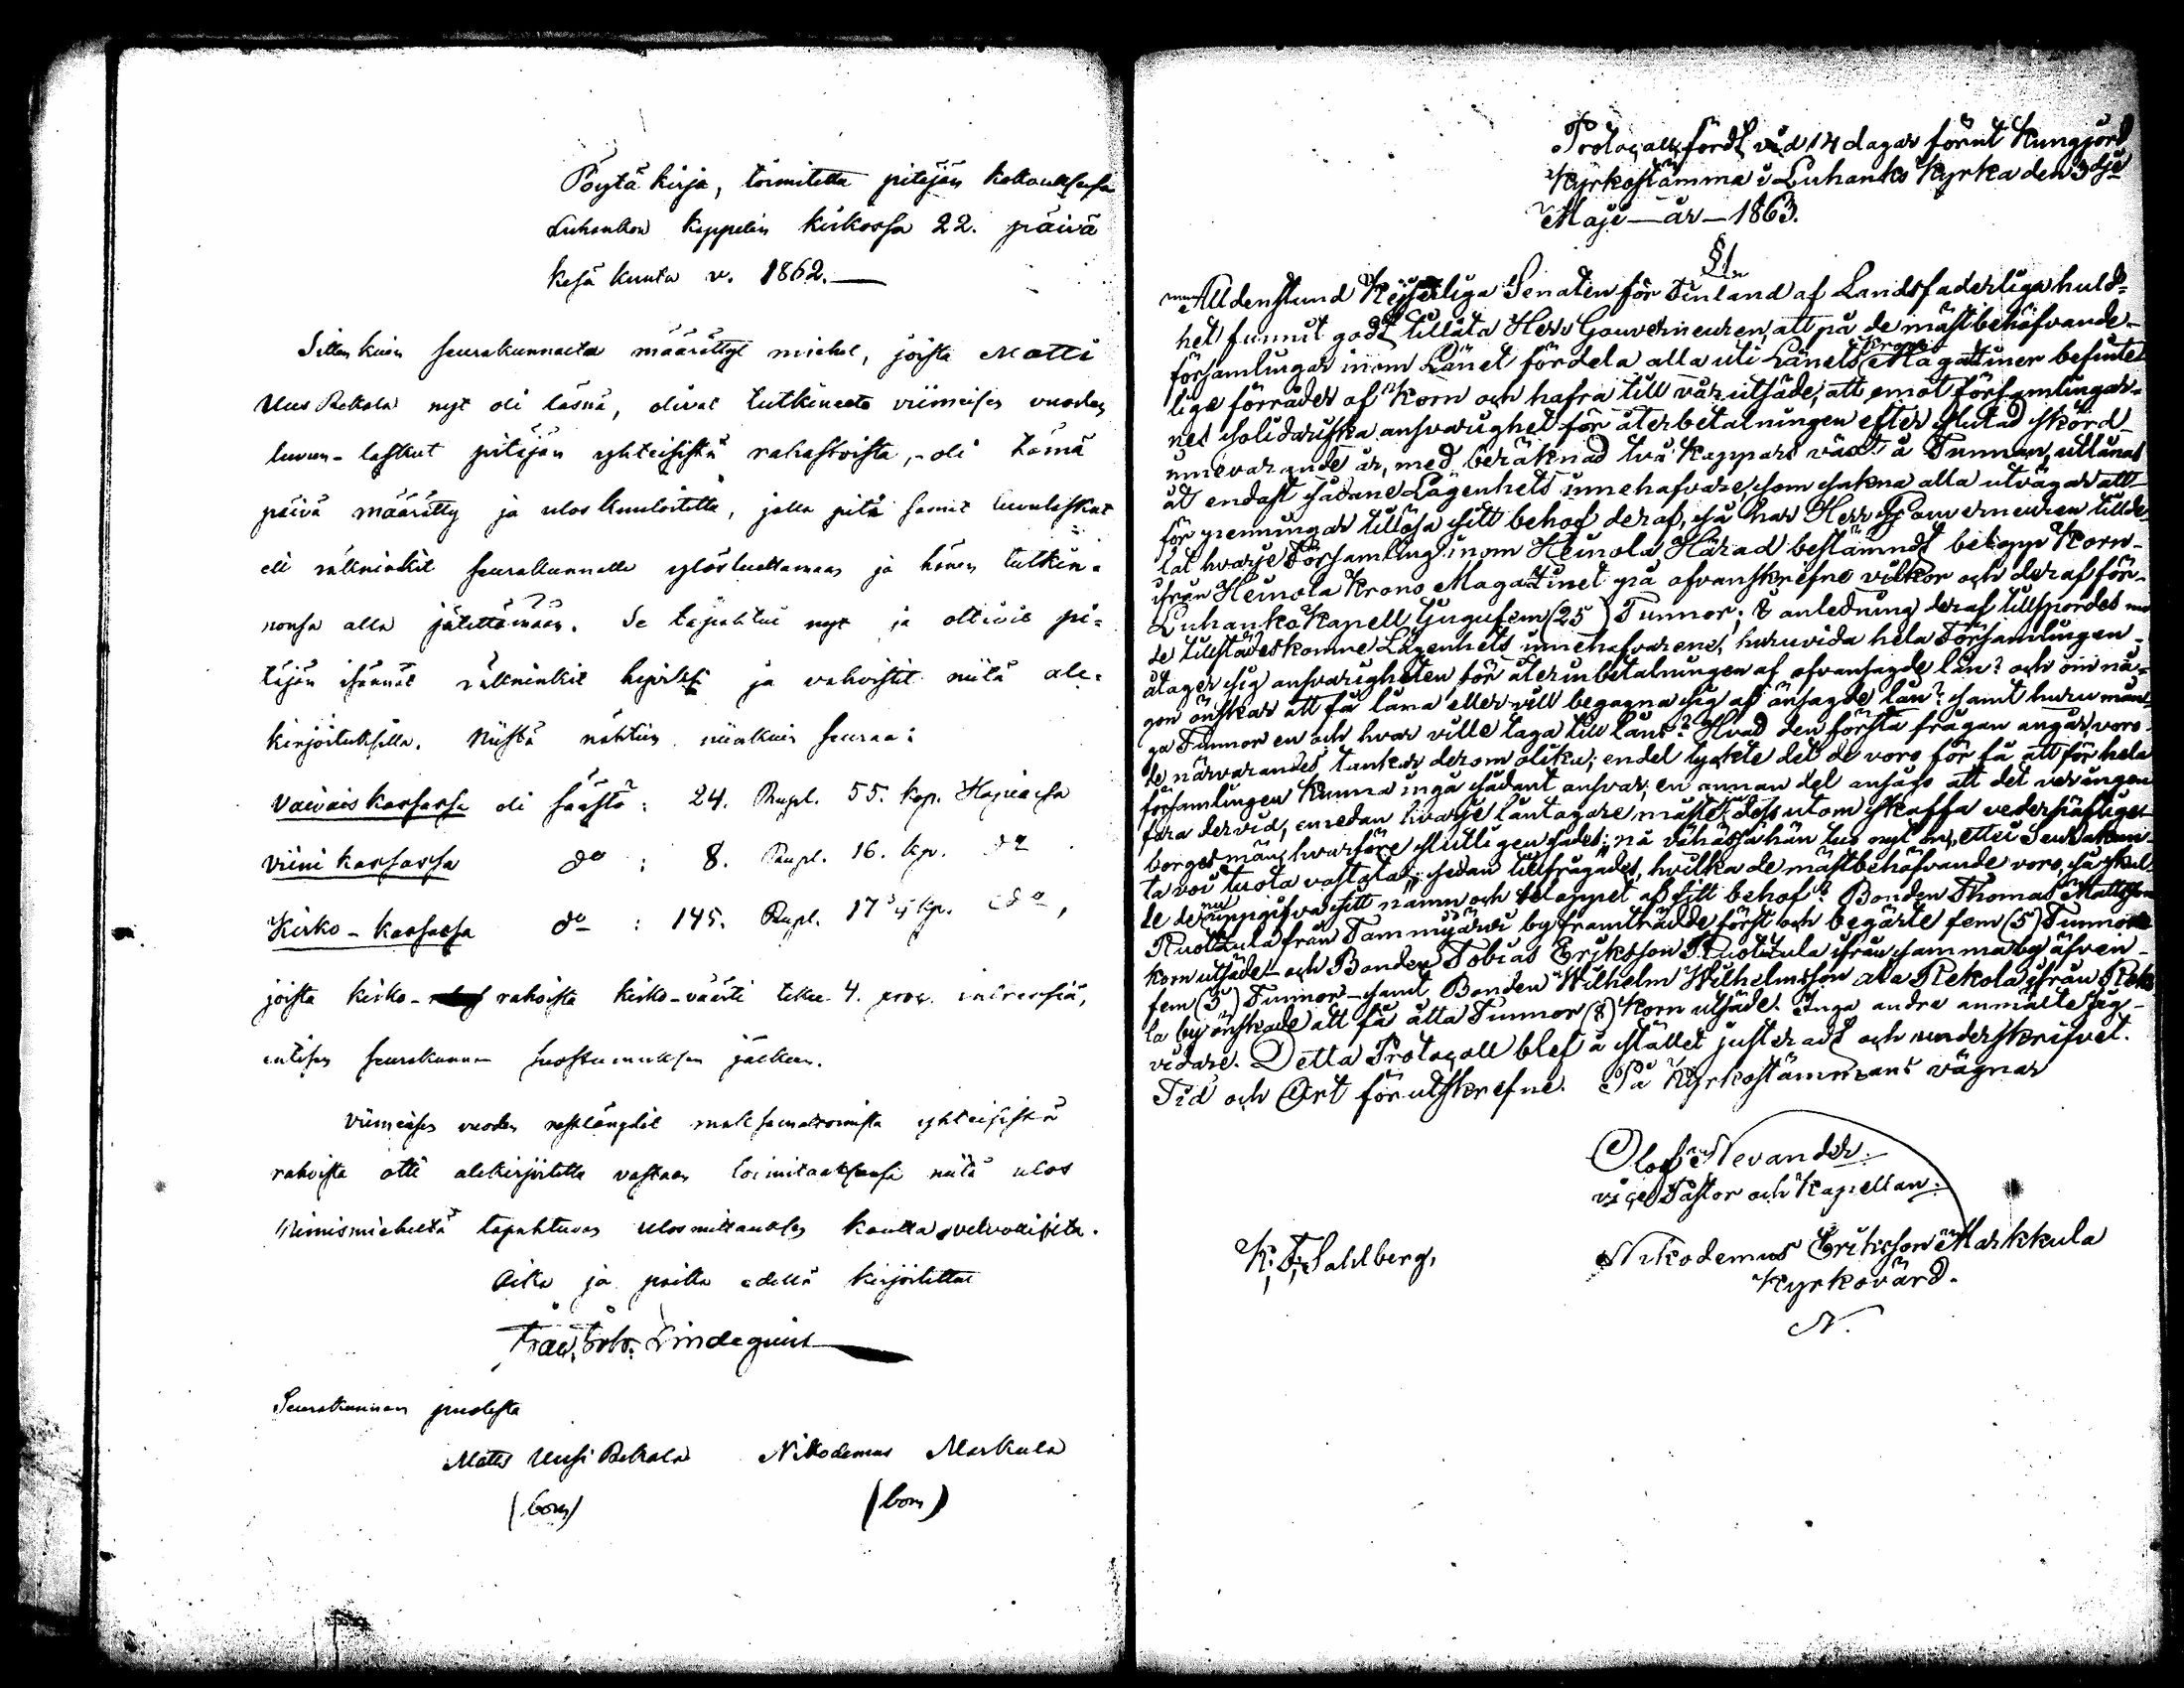 Pöytä kirja, toimitettu pitäjän kokouksessa
Luhankan kappelin kirkossa 22. päivä
kesä kuuta v. 1862.
Sitten kuin seurakunnalta määrätyt miehet, joista Matti
Uusi Rekola nyt oli läsnä, olivat tutkineet viimeisen vuoden
luvun-laskut pitäjän yhteisistä rahastoista, - oli tämä
päivä määrätty ja uloskuuloitettu, jolla pitä samat luvulaskut
eli räkningit seurakunnalle ylösluettaman ja hänen tutkin-
nonsa alla jätettämän. Se tapahtui nyt ja ottivit pi-
täjän isännät räkningit hyviksi ja vahvistit niitä ale-
kirjoituksilla. Niistä nähtiin niinkuin seuraa:
Vaivais kassassa oli säästö: 24. Rupl. 55. kop. Hopeassa
Viini kassassa do : 8. Rupl. 16. kop. do
Kirko-kassassa do : 145. Rupl. 17 3/4 kp. do,
joista kirko- rahoista kirko-väärti tekee 4. proc. intressiä,
entisen seurakunnan suostumuksen jälkeen.
Viimeisen vuoden restlängdit maksamattomista yhteisistä
rahoista otti alekirjoitettu vastaan toimitaaksensa niitä ulos
Nimismieheltä tapahtuvan ulosmittauksen kautta velvollisilta.
Aika ja paikka edellä kirjoitettut
Lindequist
Seurakunnan puolesta
Matti Uusi Rekola Nikodemus Markula
(bom) (bom)
Protocoll, fördt vid 14 dagar förut kungjord
Kyrkostämma i Luhanko Kyrka den 3dje
Maji — år — 1863.
§1.
Alldenstund Kejserliga Senaten för Finland af Landsfaderliga huld-
het funnit godt tillåta Herr Gouverneuren, att på de mäst behöfvande
församlingar inom Länet fördela alla uti Länets Krono Magatziner befinte-
liga förråder af Korn och hafra till vårutsäde, att emot församlingar-
nes solidariska ansvarighet för återbetalningen efter slutad skörd
innevarande år, med beräknad två Kappars växt å Tunnan, utlånas
åt endast sådane Lägenhets innehafvare, som sakna alla utvägar att
för penningar tillösa sitt behof deraf, så har Herr Gouverneuren tillde-
lat hvarje Församling inom Heinola Härad bestämdt belopp Korn
ifrån Heinola Krono Magatzinet på ofvanskrefne vilkor och deraf för
Luhanko Kapell tjugufem (25) Tunnor; I anledning deraf tillspordes nu
de tillstädeskomne Lägenhets innehafvarena, huruvida hela Församlingen
åtager sig ansvarigheten för återinbetalningen af ofvansagde lån? och om nå-
gon önskar att få låna eller vill begagna sig af ånsagde lån? samt huru mån-
ga Tunnor en och hvar ville taga till låns? Hvad den första frågan angår, voro
de närvarandes tankar derom olika; endel tyckte det de voro för få att för hela
församlingen kunna ingå sådant ansvar, en annan del ansågo att det var ingen
fara dervid, emedan hvarje låntagare måste dessutom skaffa vederhäftiga
borgesmän; hvarföre slutligen sades: nå vähässähän tuo nyt on, ettei Seurakun-
ta voi tuota vastata; sedan tillfrågades, hvilka de mästbehöfvande voro, så skul-
le de nu uppgifva sitt namn och beloppet af sitt behof? Bonden Thomas Mattsson
Ruottula från Tammijärvi by framträdde först och begärte fem (5) Tunnor
korn utsäde - och Bonden Tobias Eriksson Ruottula ifrån samma by äfven
fem (5) Tunnor - samt Bonden Wilhelm Wilhelmsson Ala Rekola ifrån Reko-
la by önskade att få åtta Tunnor (8) Korn utsäde. Inga andra anmälte sig
vidare. Detta Protocoll blef å stället justeradt och underskrifvet.
Tid och Ort förutskrefne. På Kyrkostämmans vägnar
Olof Nevander.
vice Pastor och Kapellan.
K. F. Sahlberg, Nikodemus Eriksson Markkula
Kyrkovärd.
N.